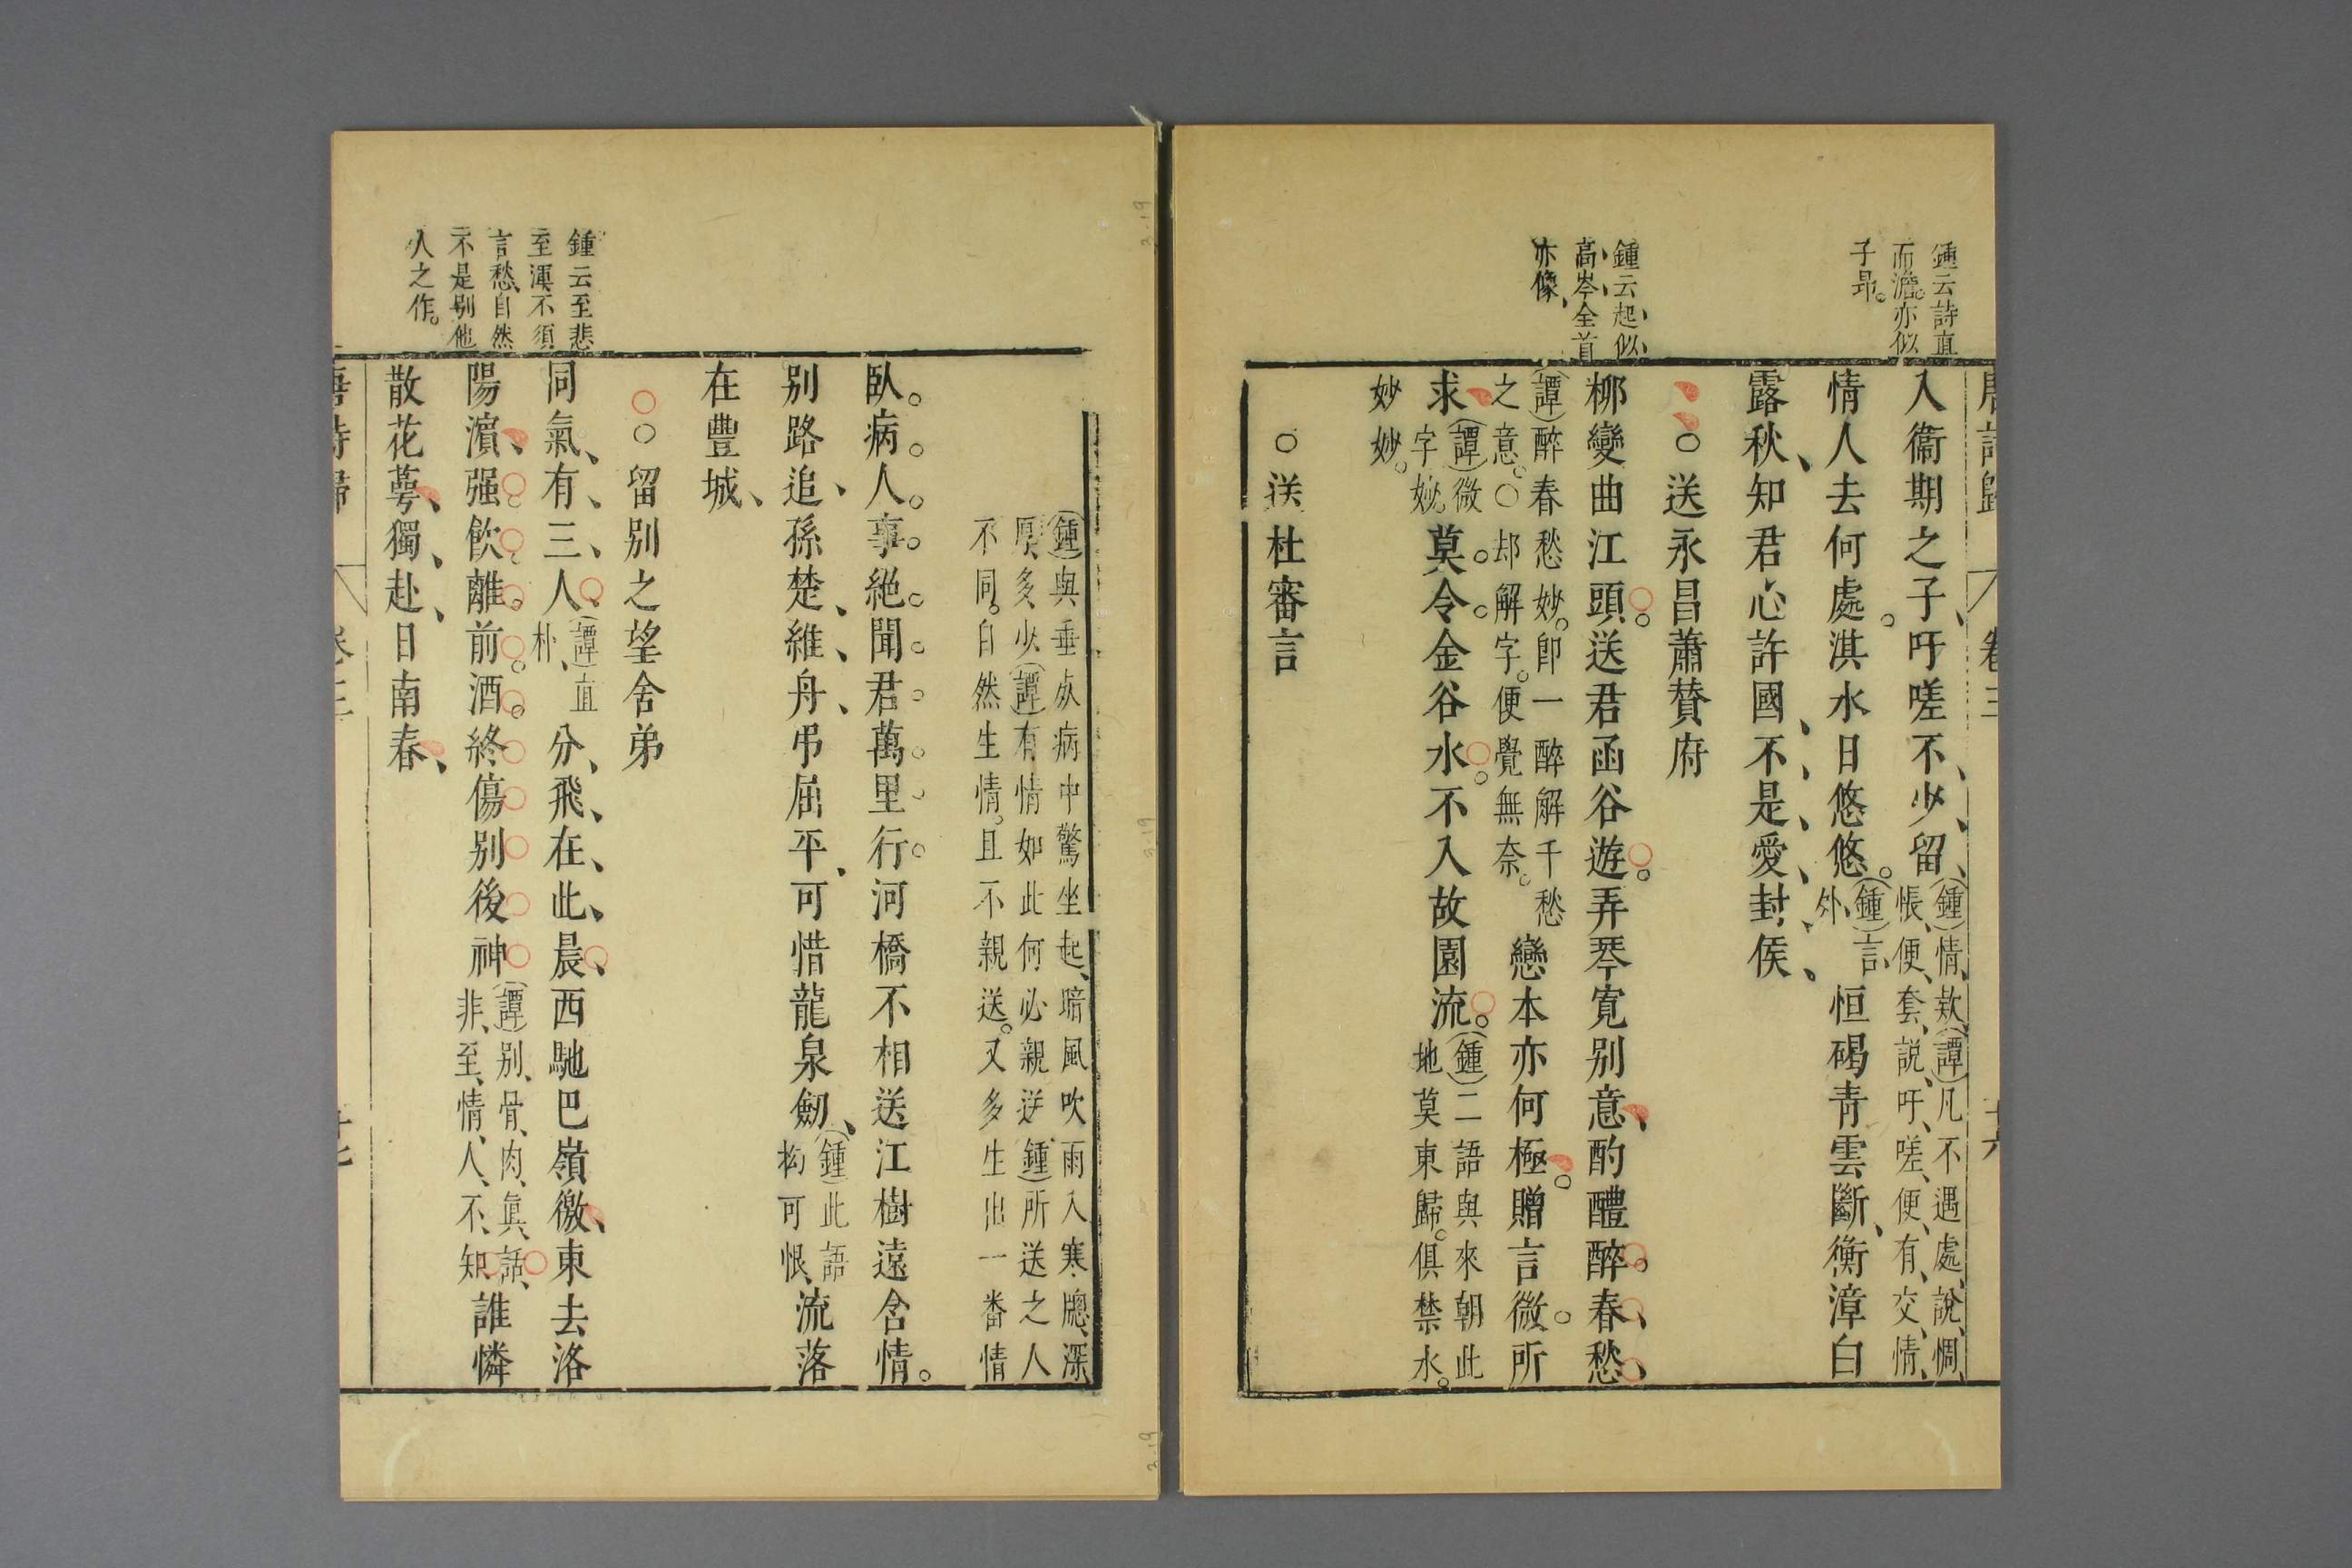 唐詩歸 卷三 十六
鍾云詩直
而澹。亦似
子昻。
入衞期之子、吁嗟不少留、(鍾)情、欵、(譚)凡不遇處、說、惆、
悵、便、套、説、吁、嗟、便、有、交、情、
情人去何處。淇水日悠悠。(鍾)言、
外、恒碣青雲斷、衡漳白
露秋、知君心許國、不是愛封侯、
○送永昌蕭贊府
鍾云起似
高岑全首
亦像、
柳變曲江頭。送君函谷遊。弄琴寛别意、酌醴醉春愁、
(譚)醉春愁妙。卽一醉解千愁
之意。○却解字。便覺無奈。戀本亦何極。贈言微所
求(譚)微
字妙。莫令金谷水。不入故園流。(鍾)二語與來朝此
地莫東歸。俱禁水。
妙妙。
○送杜審言
(鍾)與垂死病中驚坐起、暗風吹雨入寒牕、深、
厚、多少(譚)有情如此何必親送、(鍾)所送之人
不同。自然生情。且不親送。又多生出一番情
臥病人事絶。聞君萬里行。河橋不相送江樹遠含情。
别路追孫楚、維舟弔屈平、可惜龍泉劒、(鍾)此語
拘可恨、流落
在豐城、
○○留别之望舍弟
鍾云至悲
至渾不須
言愁、自然
不是别他
人之作。
同氣有三人、(譚)直
朴、分飛在此晨、西馳巴嶺徼、東去洛
陽濵、强飮離前酒。終傷别後神(譚)别、骨、肉、眞、話、
非、至、情、人、不、知、誰憐
散花萼、獨赴日南春、
唐詩歸 卷三 十七